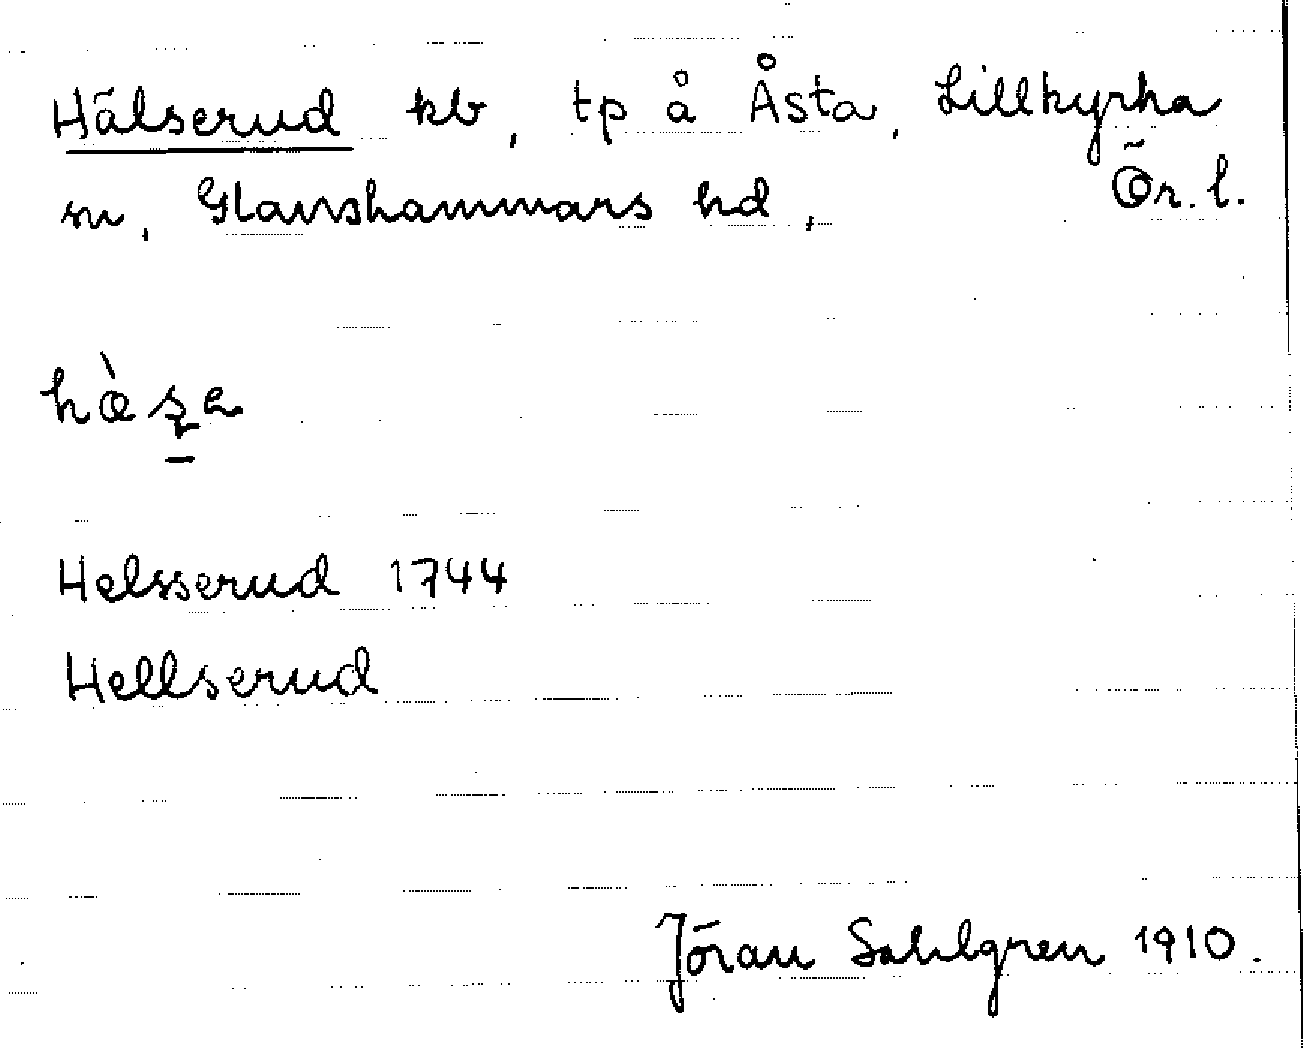 Hälserud kb, tp å Åsta, Lillkyrka
sn, Glanshammars hd, Ör. l.
Helsserud 1744
Hellserud
Jöran Sahlgren 1910.